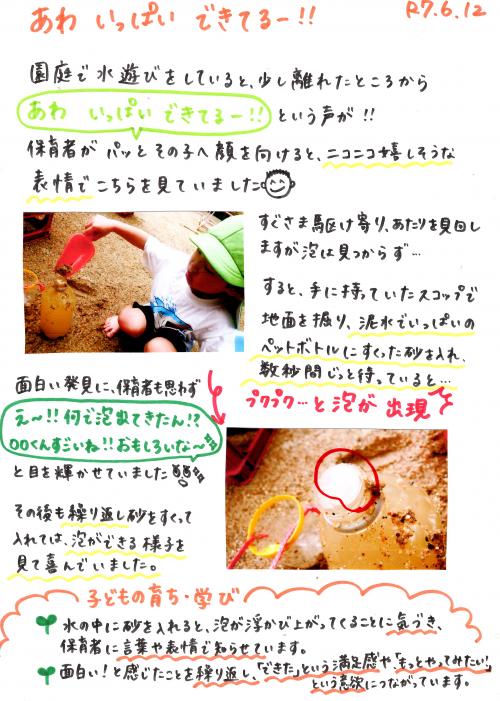 あわ いっぱい できてるー!!
R7.6.12
園庭で水遊びをしていると、少し離れたところから
あわ いっぱい できてるー!! という声が!!
保育者がパッとその子へ顔を向けると、ニコニコ嬉しそうな
表情でこちらを見ていました
すぐさま駆け寄り、あたりを見回し
ますが泡は見つからず…
すると、手に持っていたスコップで
地面を掘り、泥水でいっぱいの
ペットボトルにすくった砂を入れ、
数秒間じっと待っていると…
プクプク…と泡が 出現
面白い発見に、保育者も思わず
え〜!!何で泡出てきたん!?
〇〇くんすごいね!!おもしろいな〜
と目を輝かせていました
その後も繰り返し砂をすくって
入れては、泡ができる様子を
見て喜んでいました。
子どもの育ち・学び
水の中に砂を入れると、泡が浮かび上がってくることに気づき、
保育者に言葉や表情で知らせています。
面白い!と感じたことを繰り返し、「できた」という満足感や「もっとやってみたい!」
という意欲につながっています。